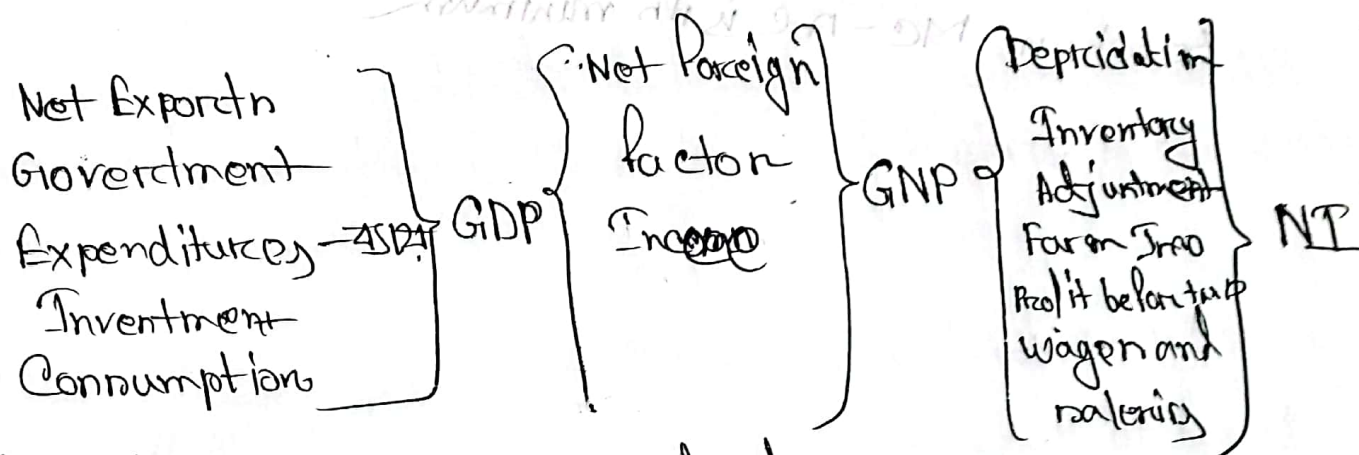 Net Exports
Government
Expenditures
Investment
Consumption
GDP
Net Foreign
factor
Income
GNP
Depricidation
Inventory
Adjustment
Farm Inco
Profit before tax
wages and
salaries
NI